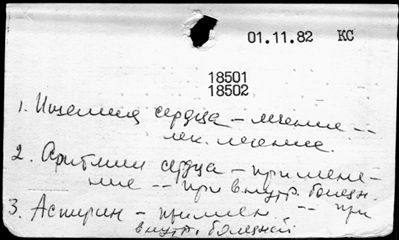 01.11.82 КС
18501
18502
1. Ишемия сердца – лечение --
лек. лечение.
2. Аритмии сердца – примене-
ние -- при внутр. болезн.
3. Аспирин – примен. -- при
внутр. болезней